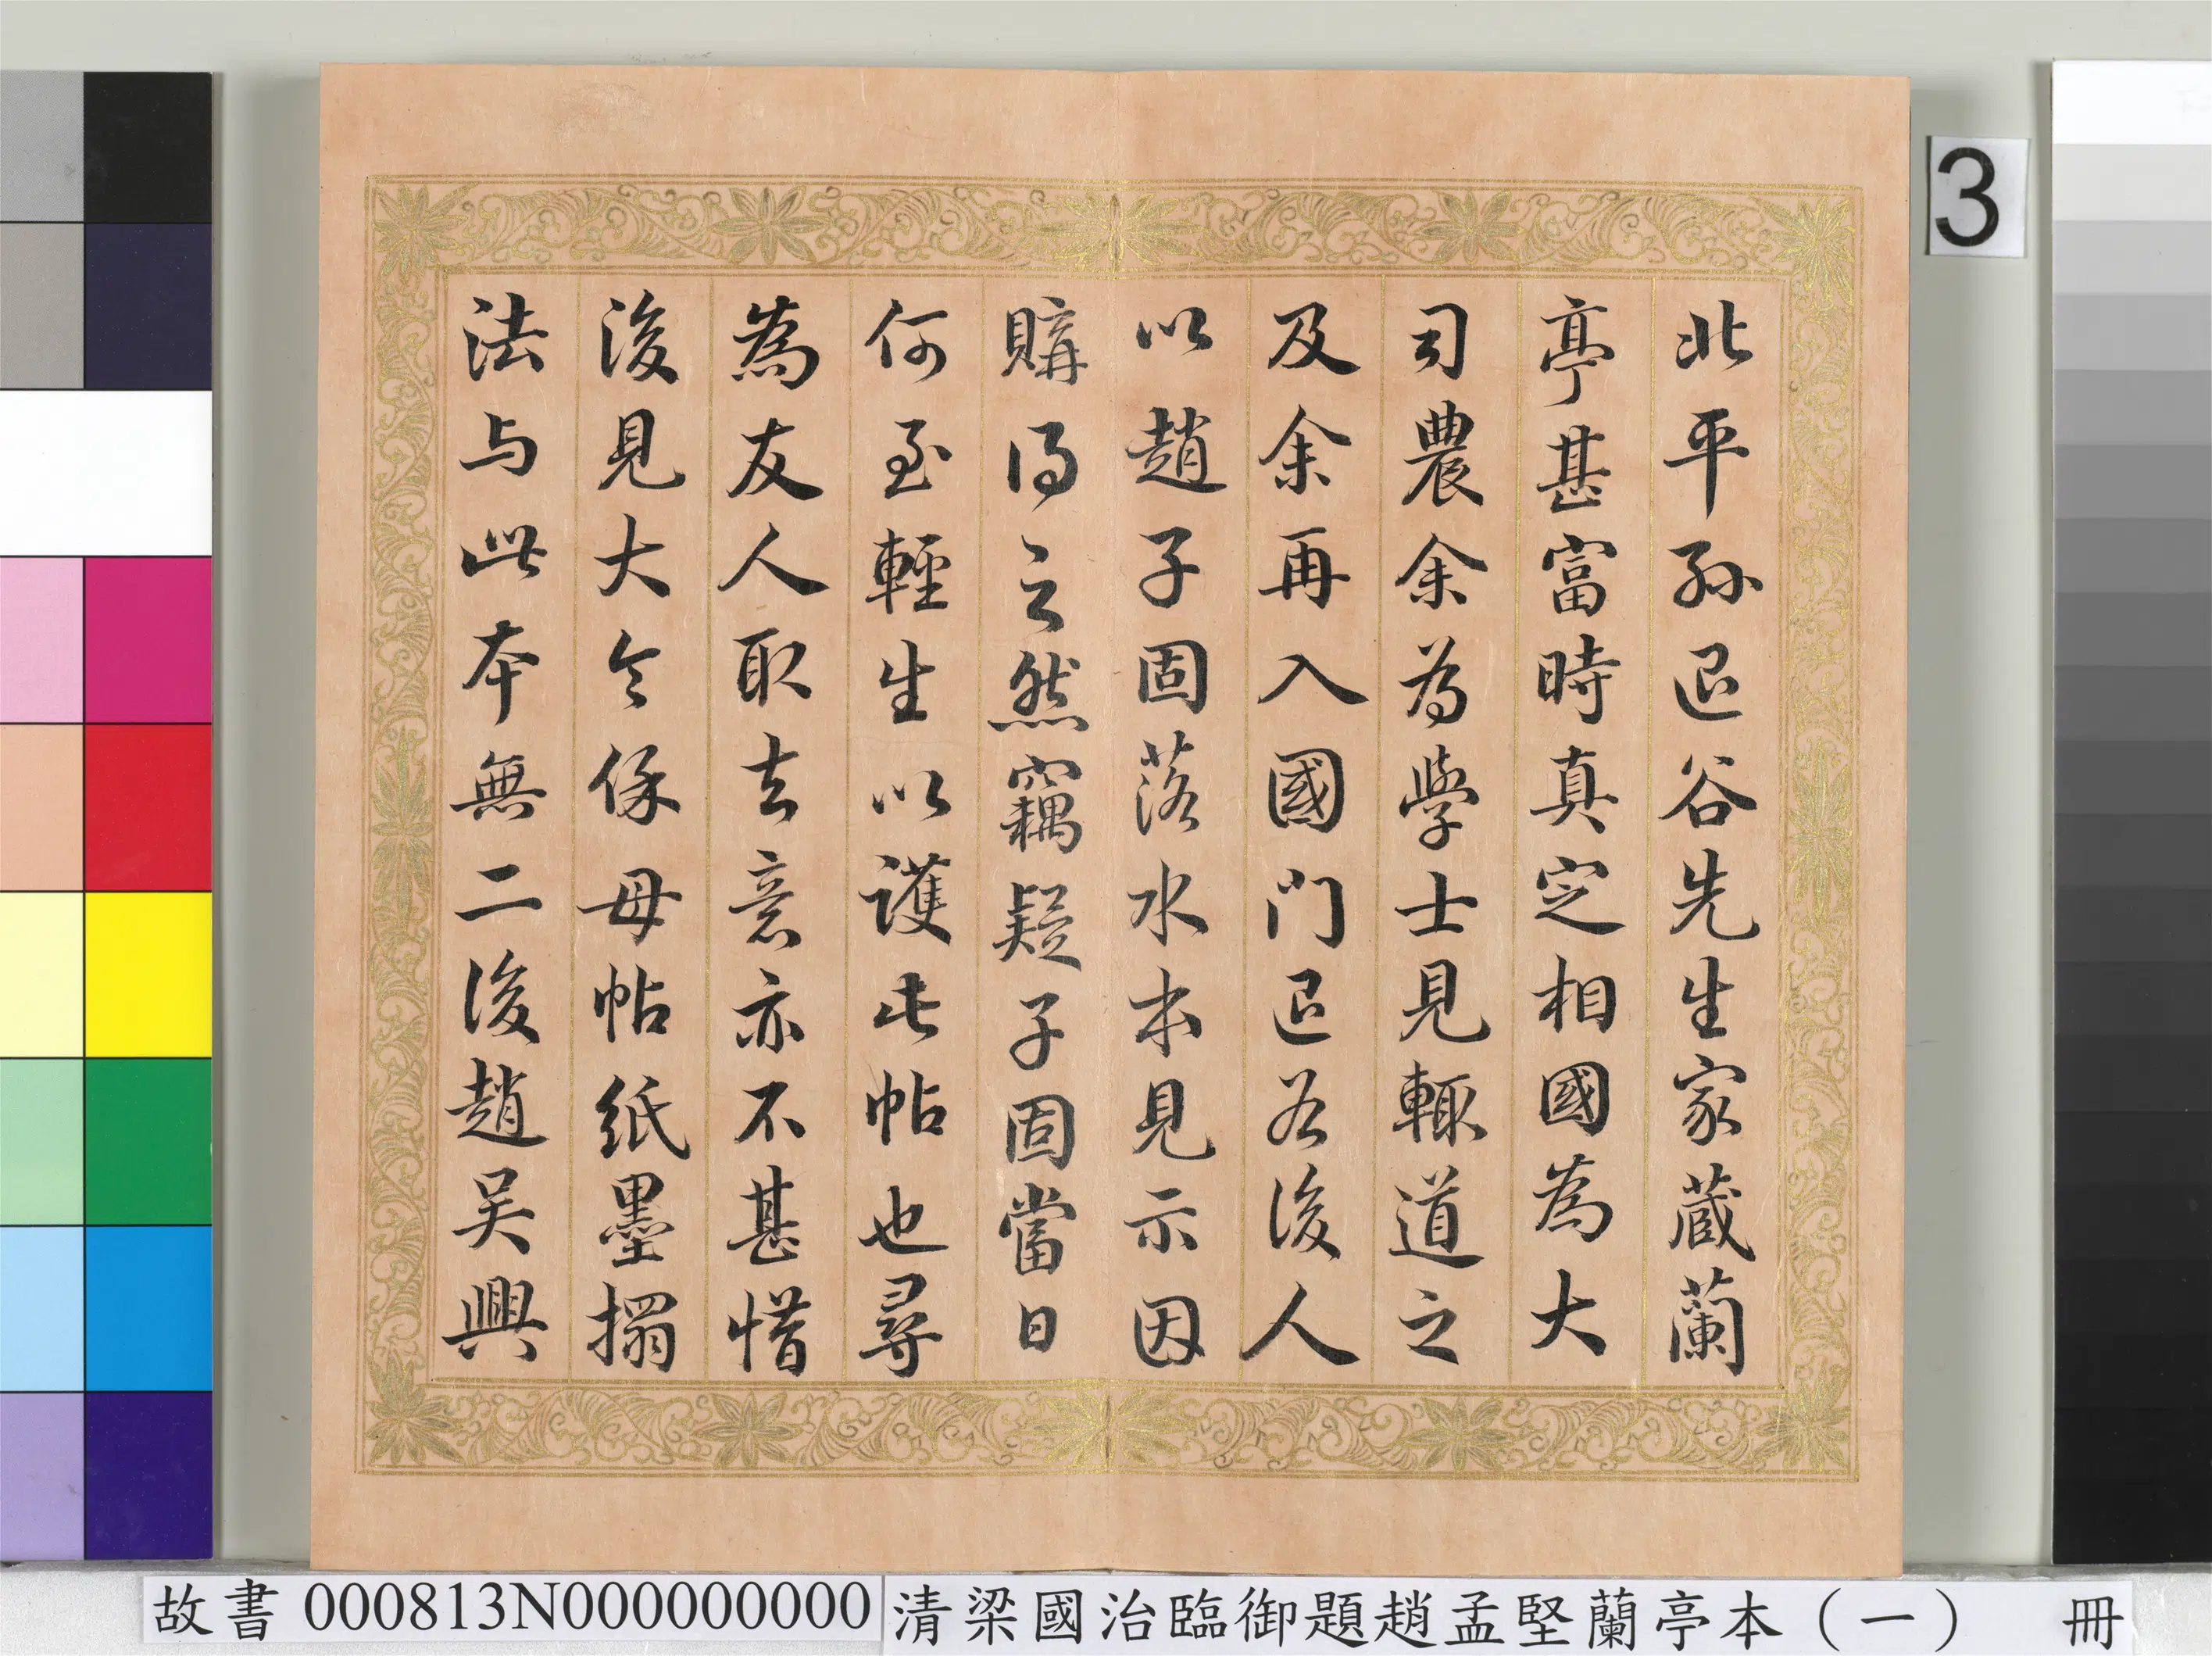 北平孫退谷先生家藏蘭
亭甚富時真定相國為大
司農余為學士見輒道之
及余再入國門退谷後人
以趙子固落水本見示因
購得之然竊疑子固當日
何至輕生以護此帖也尋
為友人取去意亦不甚惜
後見大令保母帖紙墨搨
法与此本無二後趙吴興
3
故書 000813N000000000
清梁國治臨御題趙孟堅蘭亭本（一） 冊